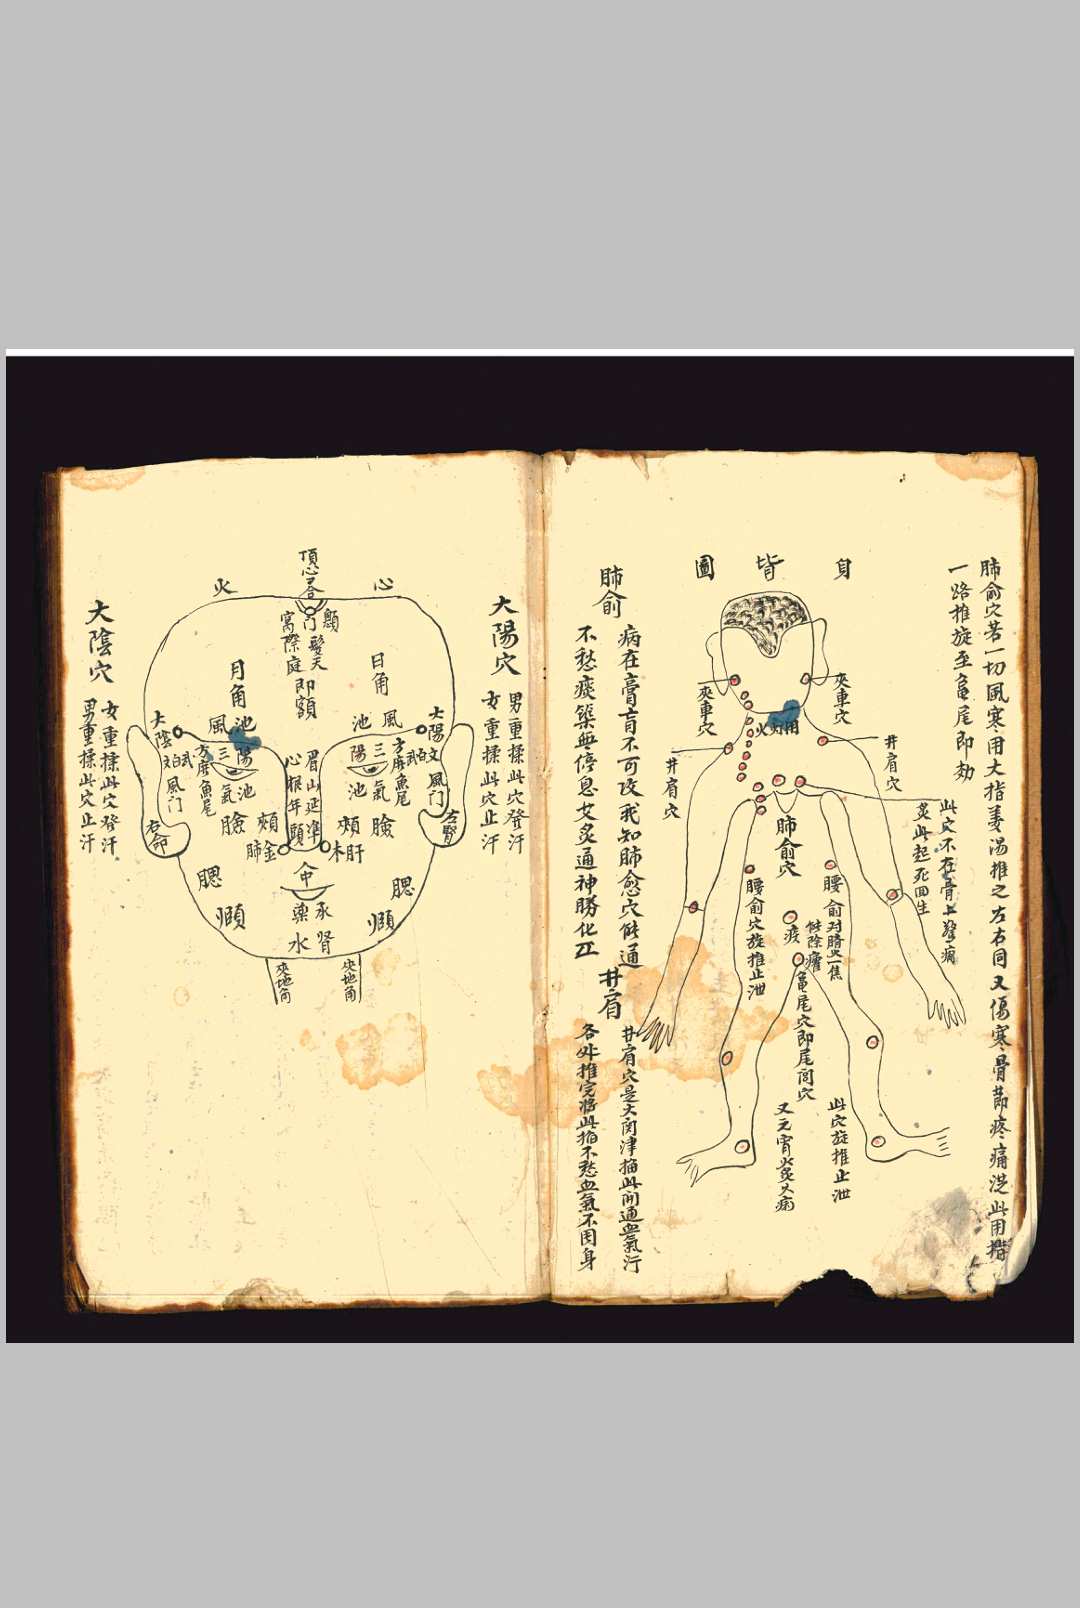 肺俞穴若一切風寒用大指姜湯推之左右同又傷寒骨節疼痛洗此用揩
一路推旋至龜尾即効
身
背
圖
夾車穴
夾車穴
井肩穴
井肩穴
此穴不在骨上
灸此起死回生
肺俞穴
腰俞穴旋推止泄
腰俞
龜尾穴即尾閭穴
此穴旋推止泄
肺俞
病在膏肓不可攻我知肺愈穴能通
不愁痰築無停息艾灸通神勝化工
井肩
井肩穴是大関津掐此開通血氣行
各処推完將此掐不愁血氣不周身
大陽穴
男重揉此穴發汗
女重揉此穴止汗
心
火
頂心
額
門
髮
天
庭
即額
日角
月角
風池
風池
大陽
大陰
三陽
三陽
氣池
氣池
魚尾
魚尾
風门
風门
左腎
右命
眉
心
山根
年
延
準頭
頰
臉
頰
臉
肝木
肺金
命
承漿
腎水
腮
腮
頤
頤
夾地角
夾地角
大陰穴
女重揉此穴發汗
男重揉此穴止汗